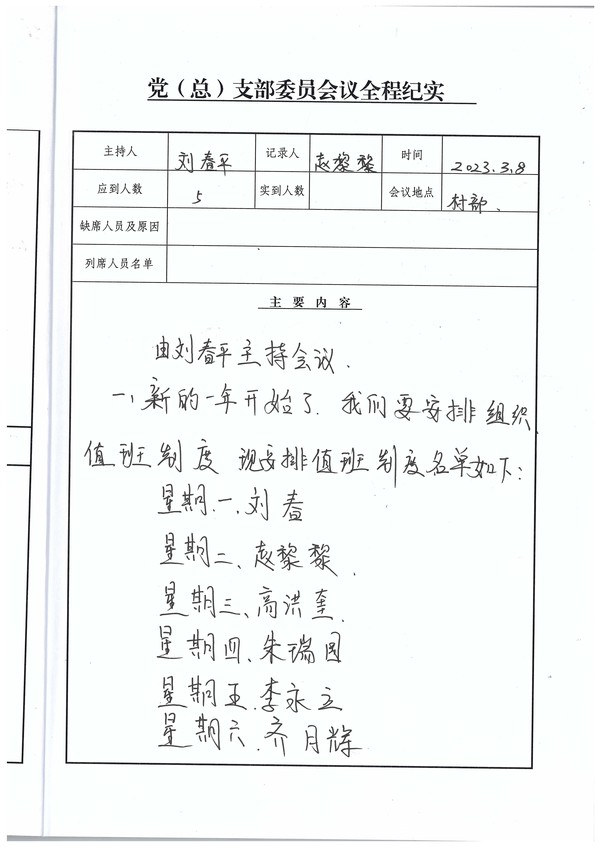 党（总）支部委员会议全程纪实
主持人 刘春平 记录人 赵黎黎 时间 2023.3.8
应到人数 5 实到人数 会议地点 村部.
缺席人员及原因
列席人员名单
主要内容
由刘春平主持会议.
一、新的一年开始了.我们要安排组织
值班制度 现安排值班制度名单如下:
星期.一.刘春
星期二、赵黎黎.
星期三、高洪奎.
星期四.朱瑞国
星期王.李永立
星期六.齐月辉